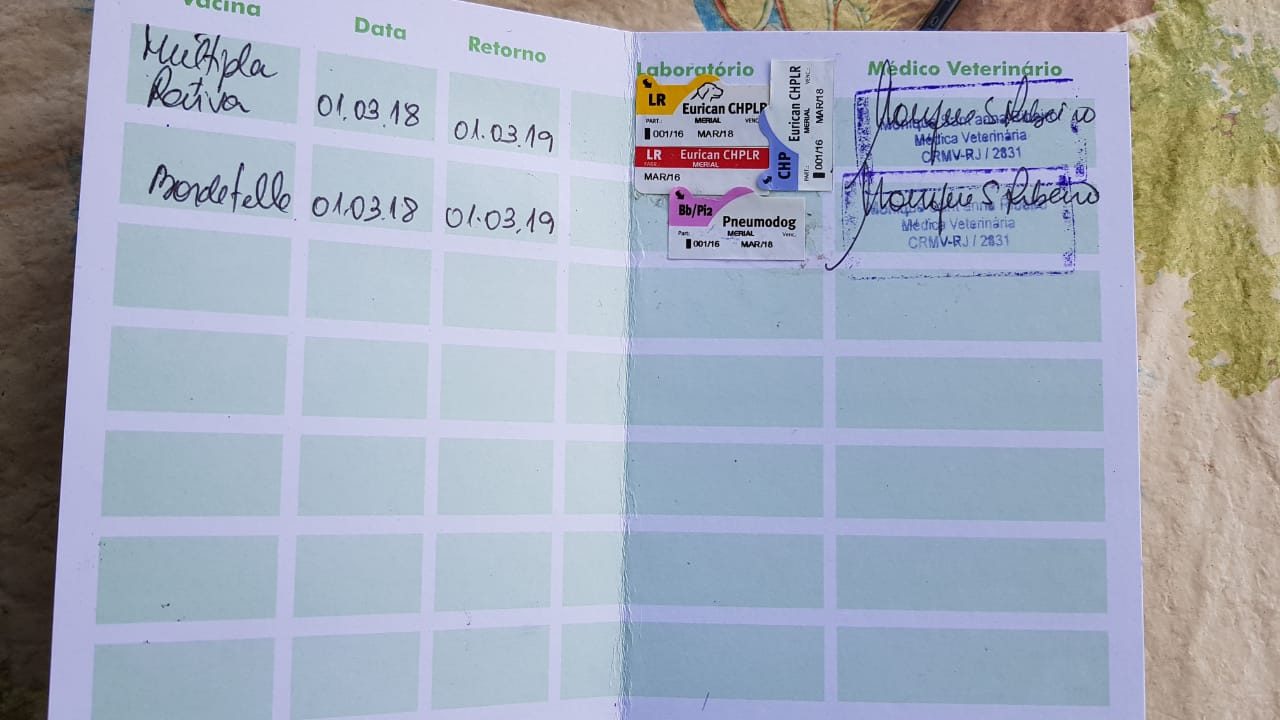 Vacina
Data
Retorno
Laboratório
Médico Veterinário
Múltipla
Raiva
01.03.18
01.03.19
LR
Eurican CHPLR
PART.:
MERIAL
VENC.
001/16 MAR/18
LR Eurican CHPLR
MERIAL
MAR/16
CHP
Eurican CHPLR
MERIAL
PART.: VENC.:
001/16 MAR/18
Médica Veterinária
CRMV-RJ / 2831
Bordetella
01.03.18
01.03.19
Bb/Pi2
Pneumodog
Part.: MERIAL Venc.
001/16 MAR/18
Médica Veterinária
CRMV-RJ / 2831